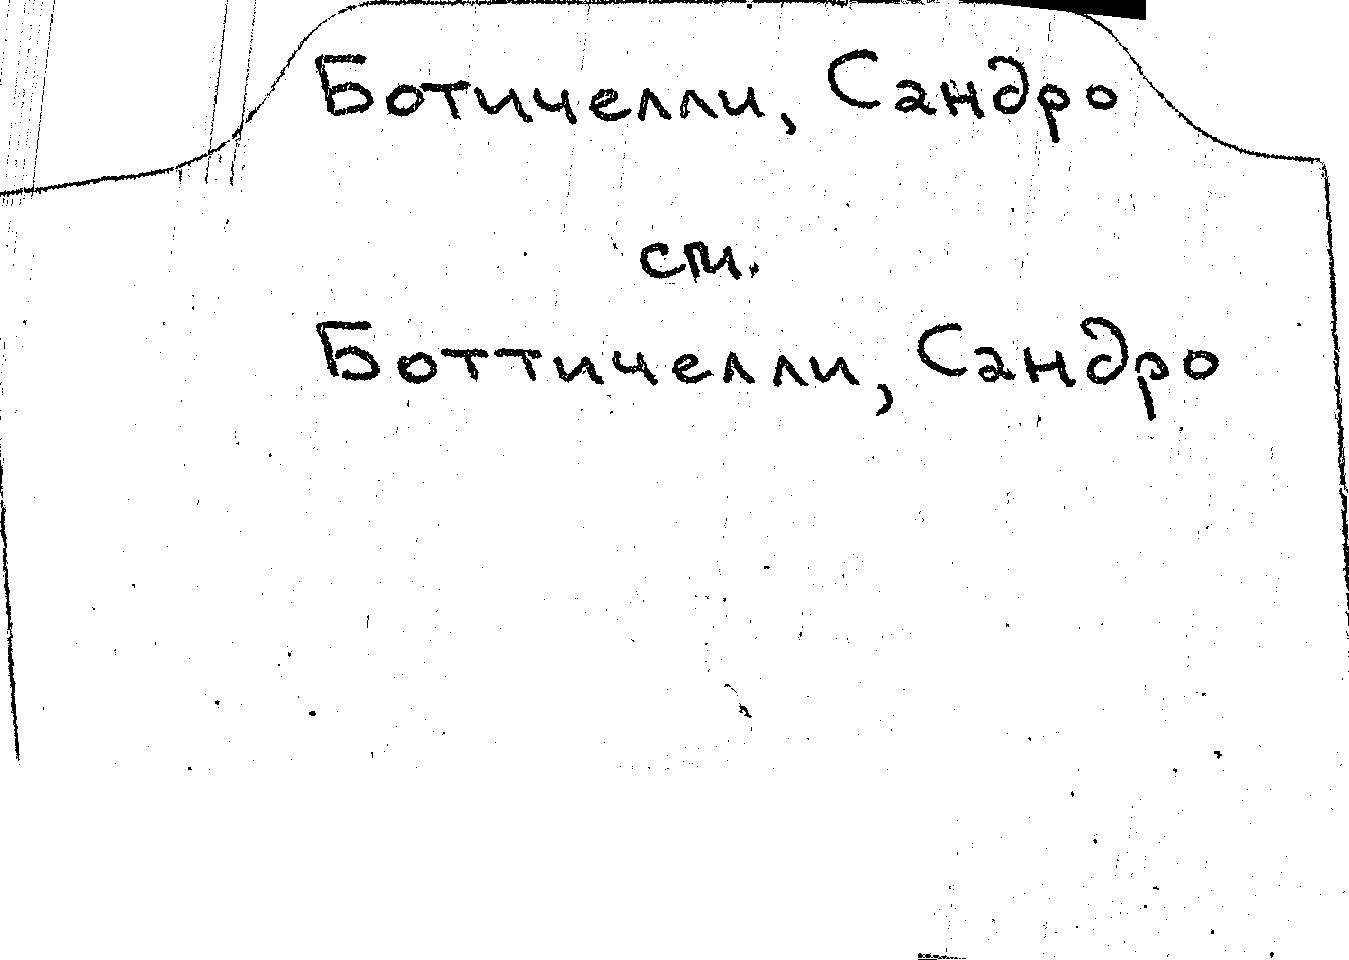 Ботичелли, Сандро
см.
Боттичелли, Сандро